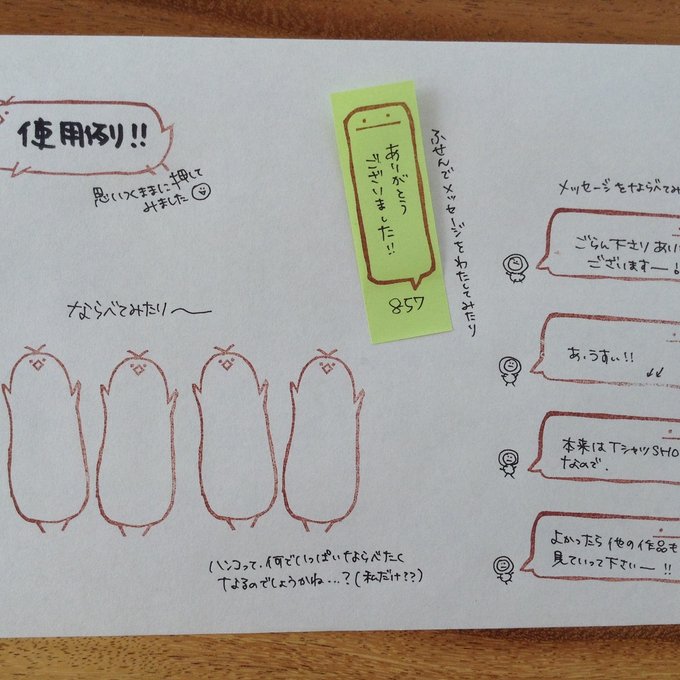 使用例り!!
思いつくままに押して
みました
ならべてみたり〜
ありがとう
ございました!!
857
ふせんでメッセージをわたしてみたり
ハンコって、何でいっぱいならべたく
なるのでしょうかね…?(私だけ??)
メッセージをならべてみ
ごらん下さり あり
ございますー!
あ、うすい!!
本来はTシャツSHO
なので、
よかったら他の作品も
見ていって下さいー!!